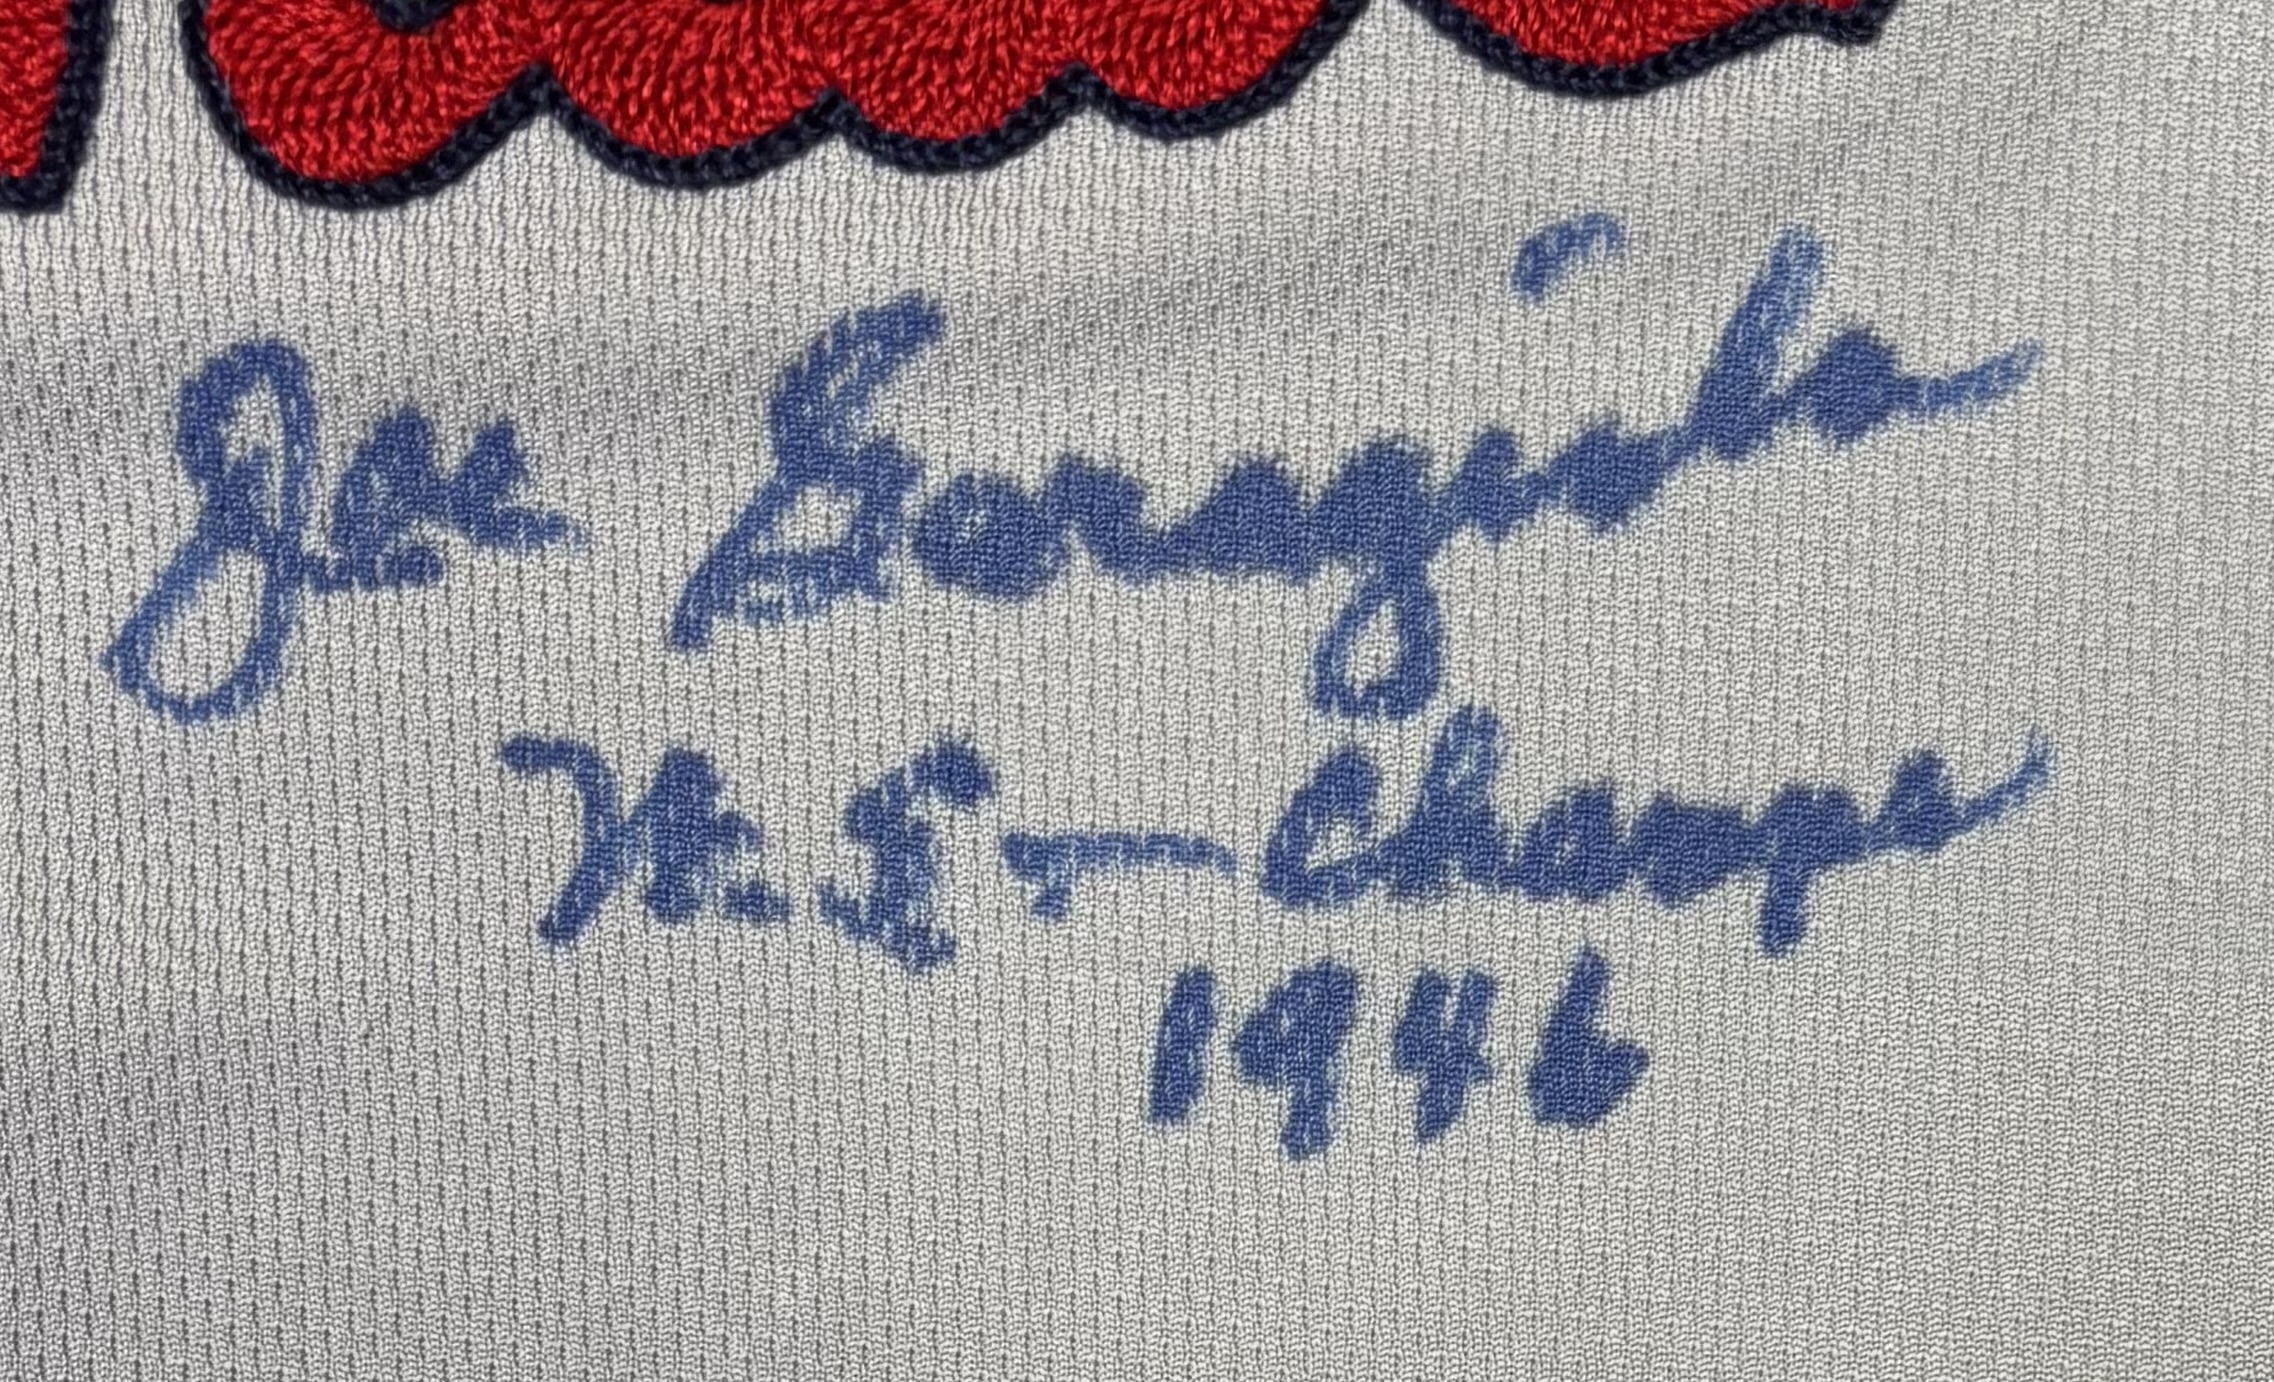 Joe Garagiola
W.S. - Champs
1946